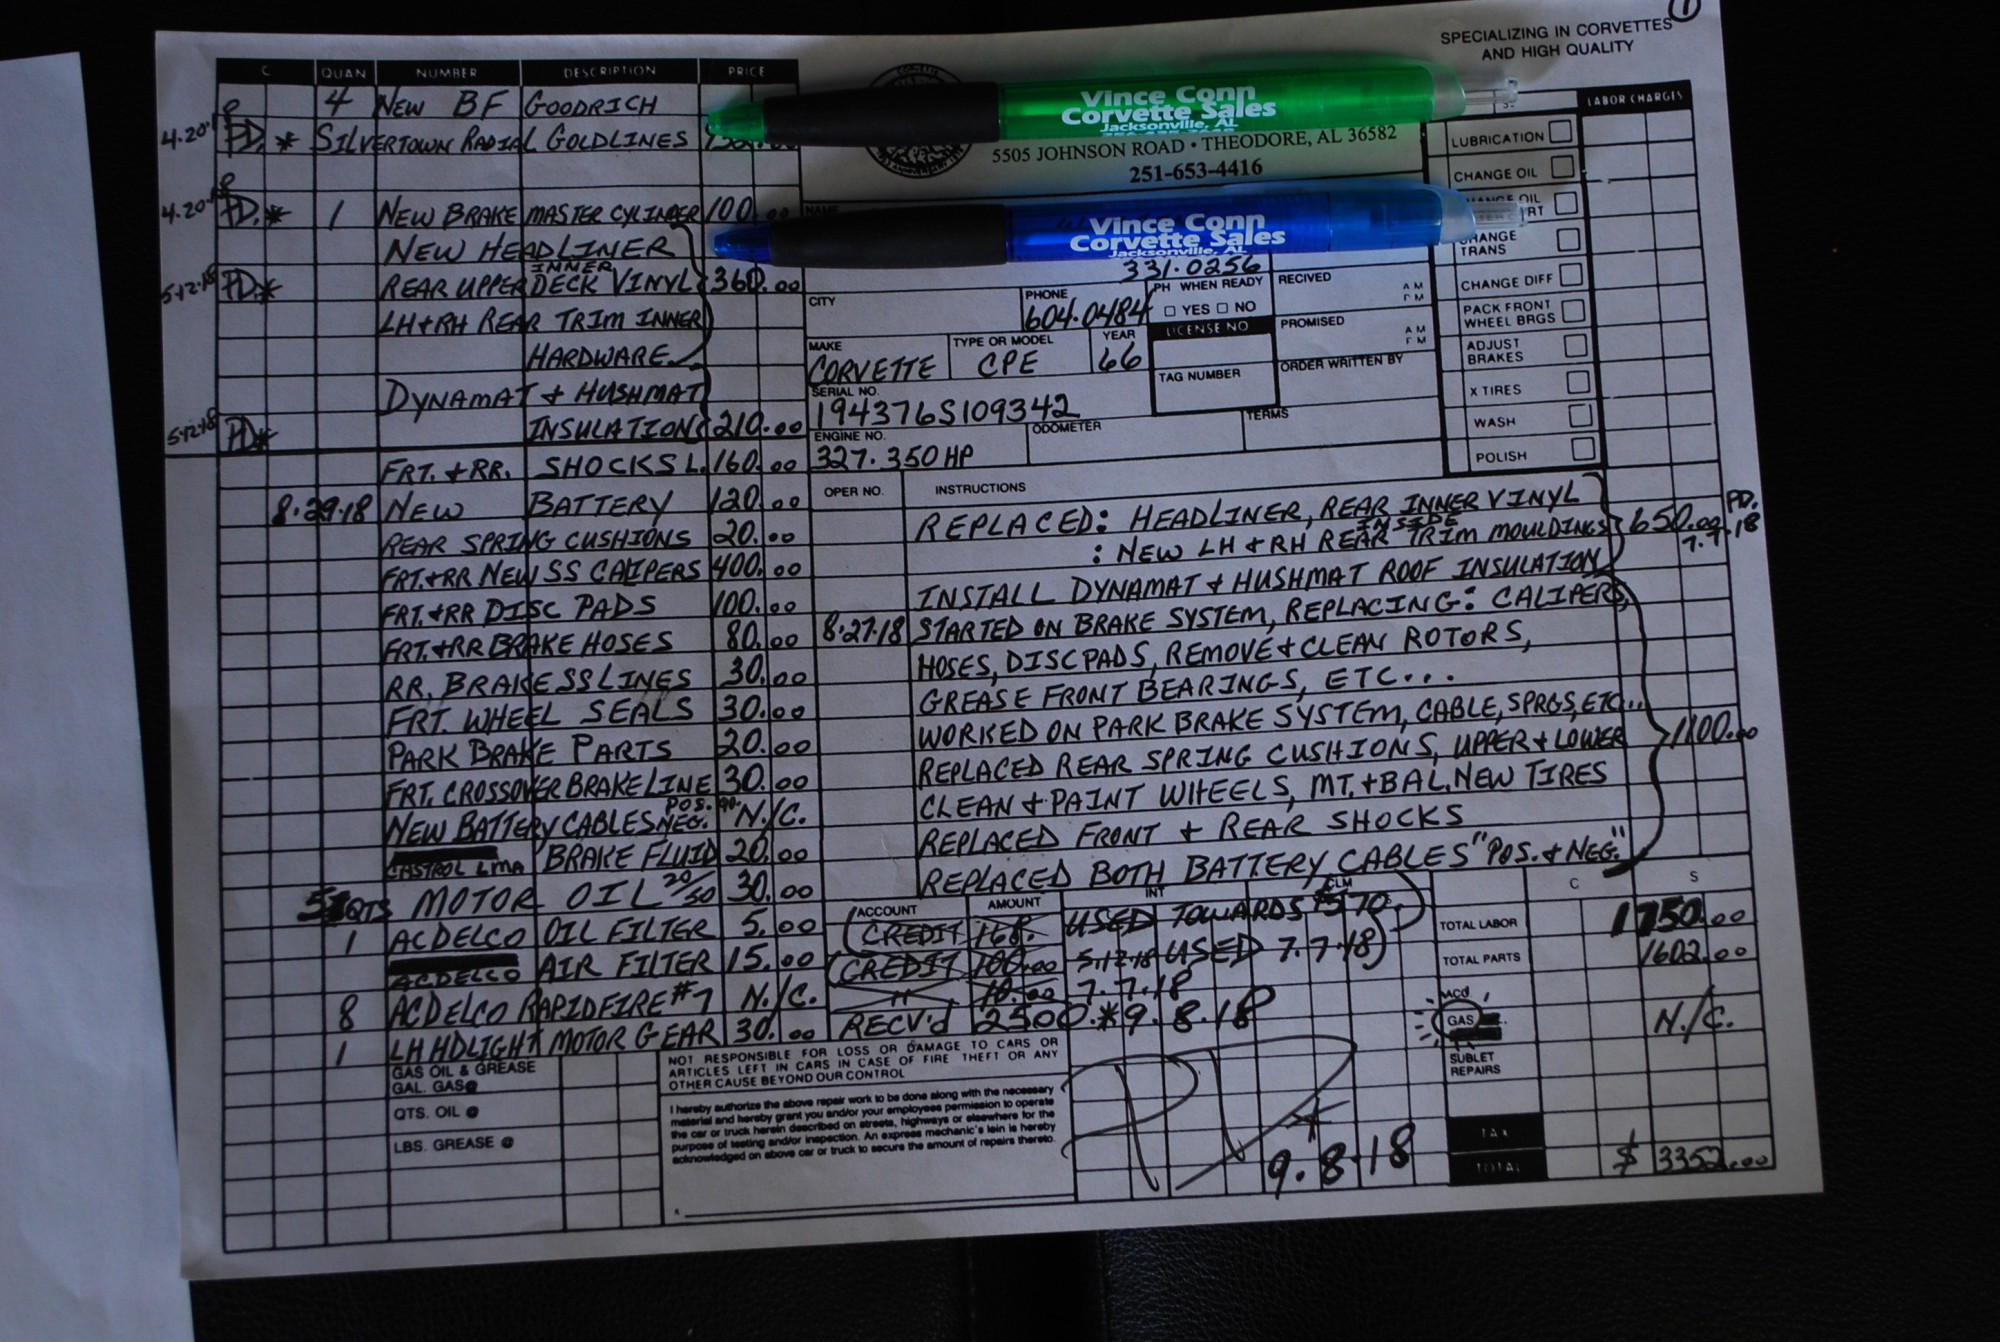 SPECIALIZING IN CORVETTES
AND HIGH QUALITY
1
C QUAN NUMBER DESCRIPTION PRICE
4 NEW BF GOODRICH
4.20. PD. * SILVERTOWN RADIAL GOLDLINES
4.20. PD. * 1 NEW BRAKE MASTER CYLINDER 100.00
NEW HEADLINER
INNER
5.12.18 PD. * REAR UPPER DECK VINYL 360.00
LH & RH REAR TRIM INNER
HARDWARE
DYNAMAT & HUSHMAT
5.12.18 PD * INSULATION 210.00
FRT. & RR. SHOCKS 160.00
8.29.18 NEW BATTERY 120.00
REAR SPRING CUSHIONS 20.00
FRT. & RR NEW SS CALIPERS 400.00
FRT. & RR DISC PADS 100.00
FRT. & RR BRAKE HOSES 80.00
RR. BRAKE SS LINES 30.00
FRT. WHEEL SEALS 30.00
PARK BRAKE PARTS 20.00
FRT. CROSSOVER BRAKE LINE 30.00
NEW BATTERY CABLES POS. NEG. N/C.
CASTROL LMA BRAKE FLUID 20.00
5 QTS MOTOR OIL 20/50 30.00
1 ACDELCO OIL FILTER 5.00
ACDELCO AIR FILTER 15.00
8 ACDELCO RAPIDFIRE #7 N./C.
1 LH HDLIGHT MOTOR GEAR 30.00
GAS OIL & GREASE
GAL. GAS @
QTS. OIL @
LBS. GREASE @
Vince Conn
Corvette Sales
Jacksonville, AL
5505 JOHNSON ROAD • THEODORE, AL 36582
251-653-4416
NAME
Vince Conn
Corvette Sales
Jacksonville, AL
331.0256
CITY
PHONE
604.0484
PH WHEN READY
YES NO
RECIVED
AM
PM
PROMISED
AM
PM
LICENSE NO
TAG NUMBER
ORDER WRITTEN BY
MAKE
CORVETTE
TYPE OR MODEL
CPE
YEAR
66
SERIAL NO.
194376S109342
ODOMETER
TERMS
ENGINE NO.
327.350HP
LABOR CHARGES
LUBRICATION
CHANGE OIL
CHANGE OIL
CHANGE
TRANS
CHANGE DIFF
PACK FRONT
WHEEL BRGS
ADJUST
BRAKES
X TIRES
WASH
POLISH
OPER NO. INSTRUCTIONS
REPLACED: HEADLINER, REAR INNER VINYL
INSIDE
: NEW LH & RH REAR TRIM MOULDINGS 650.00 PD. 7.7.18
INSTALL DYNAMAT & HUSHMAT ROOF INSULATION
8.27.18 STARTED ON BRAKE SYSTEM, REPLACING: CALIPERS,
HOSES, DISC PADS, REMOVE & CLEAN ROTORS,
GREASE FRONT BEARINGS, ETC...
WORKED ON PARK BRAKE SYSTEM, CABLE, SPRGS, ETC...
REPLACED REAR SPRING CUSHIONS, UPPER & LOWER 1100.00
CLEAN & PAINT WHEELS, MT. & BAL. NEW TIRES
REPLACED FRONT & REAR SHOCKS
REPLACED BOTH BATTERY CABLES "POS. & NEG."
ACCOUNT AMOUNT INT CLM
CREDIT 168. USED TOWARDS $570.
CREDIT 100.00 5.12.18 USED 7.7.18
" 10.00 7.7.18
RECV'd 2500.* 9.8.18
C S
TOTAL LABOR 1750.00
TOTAL PARTS 1602.00
GAS N./C.
SUBLET
REPAIRS
TAX
TOTAL $ 3352.00
NOT RESPONSIBLE FOR LOSS OR DAMAGE TO CARS OR
ARTICLES LEFT IN CARS IN CASE OF FIRE THEFT OR ANY
OTHER CAUSE BEYOND OUR CONTROL
I hereby authorize the above repair work to be done along with the necessary
material and hereby grant you and/or your employees permission to operate
the car or truck herein described on streets, highways or elsewhere for the
purpose of testing and/or inspection. An express mechanic's lein is hereby
acknowledged on above car or truck to secure the amount of repairs thereto.
PD
*
9.8.18